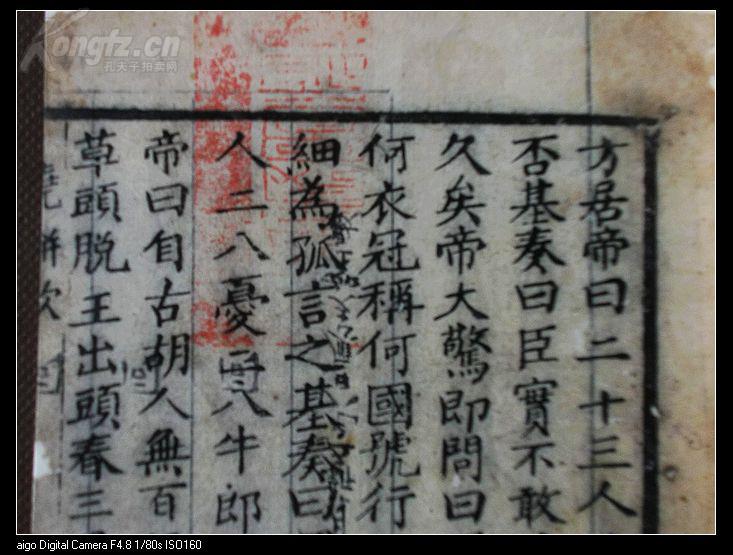 Kongfz.cn
孔夫子拍卖网
方居帝曰二十三人
否基奏曰臣實不敢
久矣帝大驚即問曰
何衣冠稱何國號行
細為孤言之基奏曰
人二八憂再八牛郎
帝曰自古胡人無百
草頭脫王出頭春三
aigo Digital Camera F4.8 1/80s ISO160